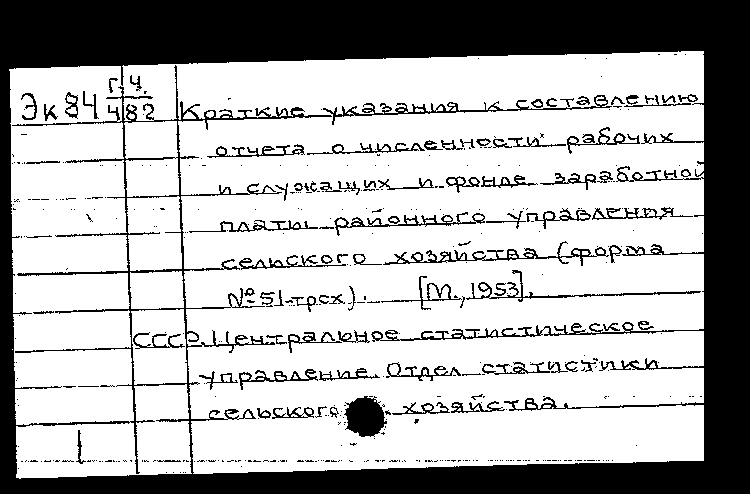 Г.Ч.
Эк 84 482 Краткие указания к составлению
отчета о численности рабочих
и служащих и фонде заработной
платы районного управления
сельского хозяйства (форма
№51-трсх). [М., 1953].
СССР. Центральное статистическое
управление. Отдел статистики
сельского хозяйства.